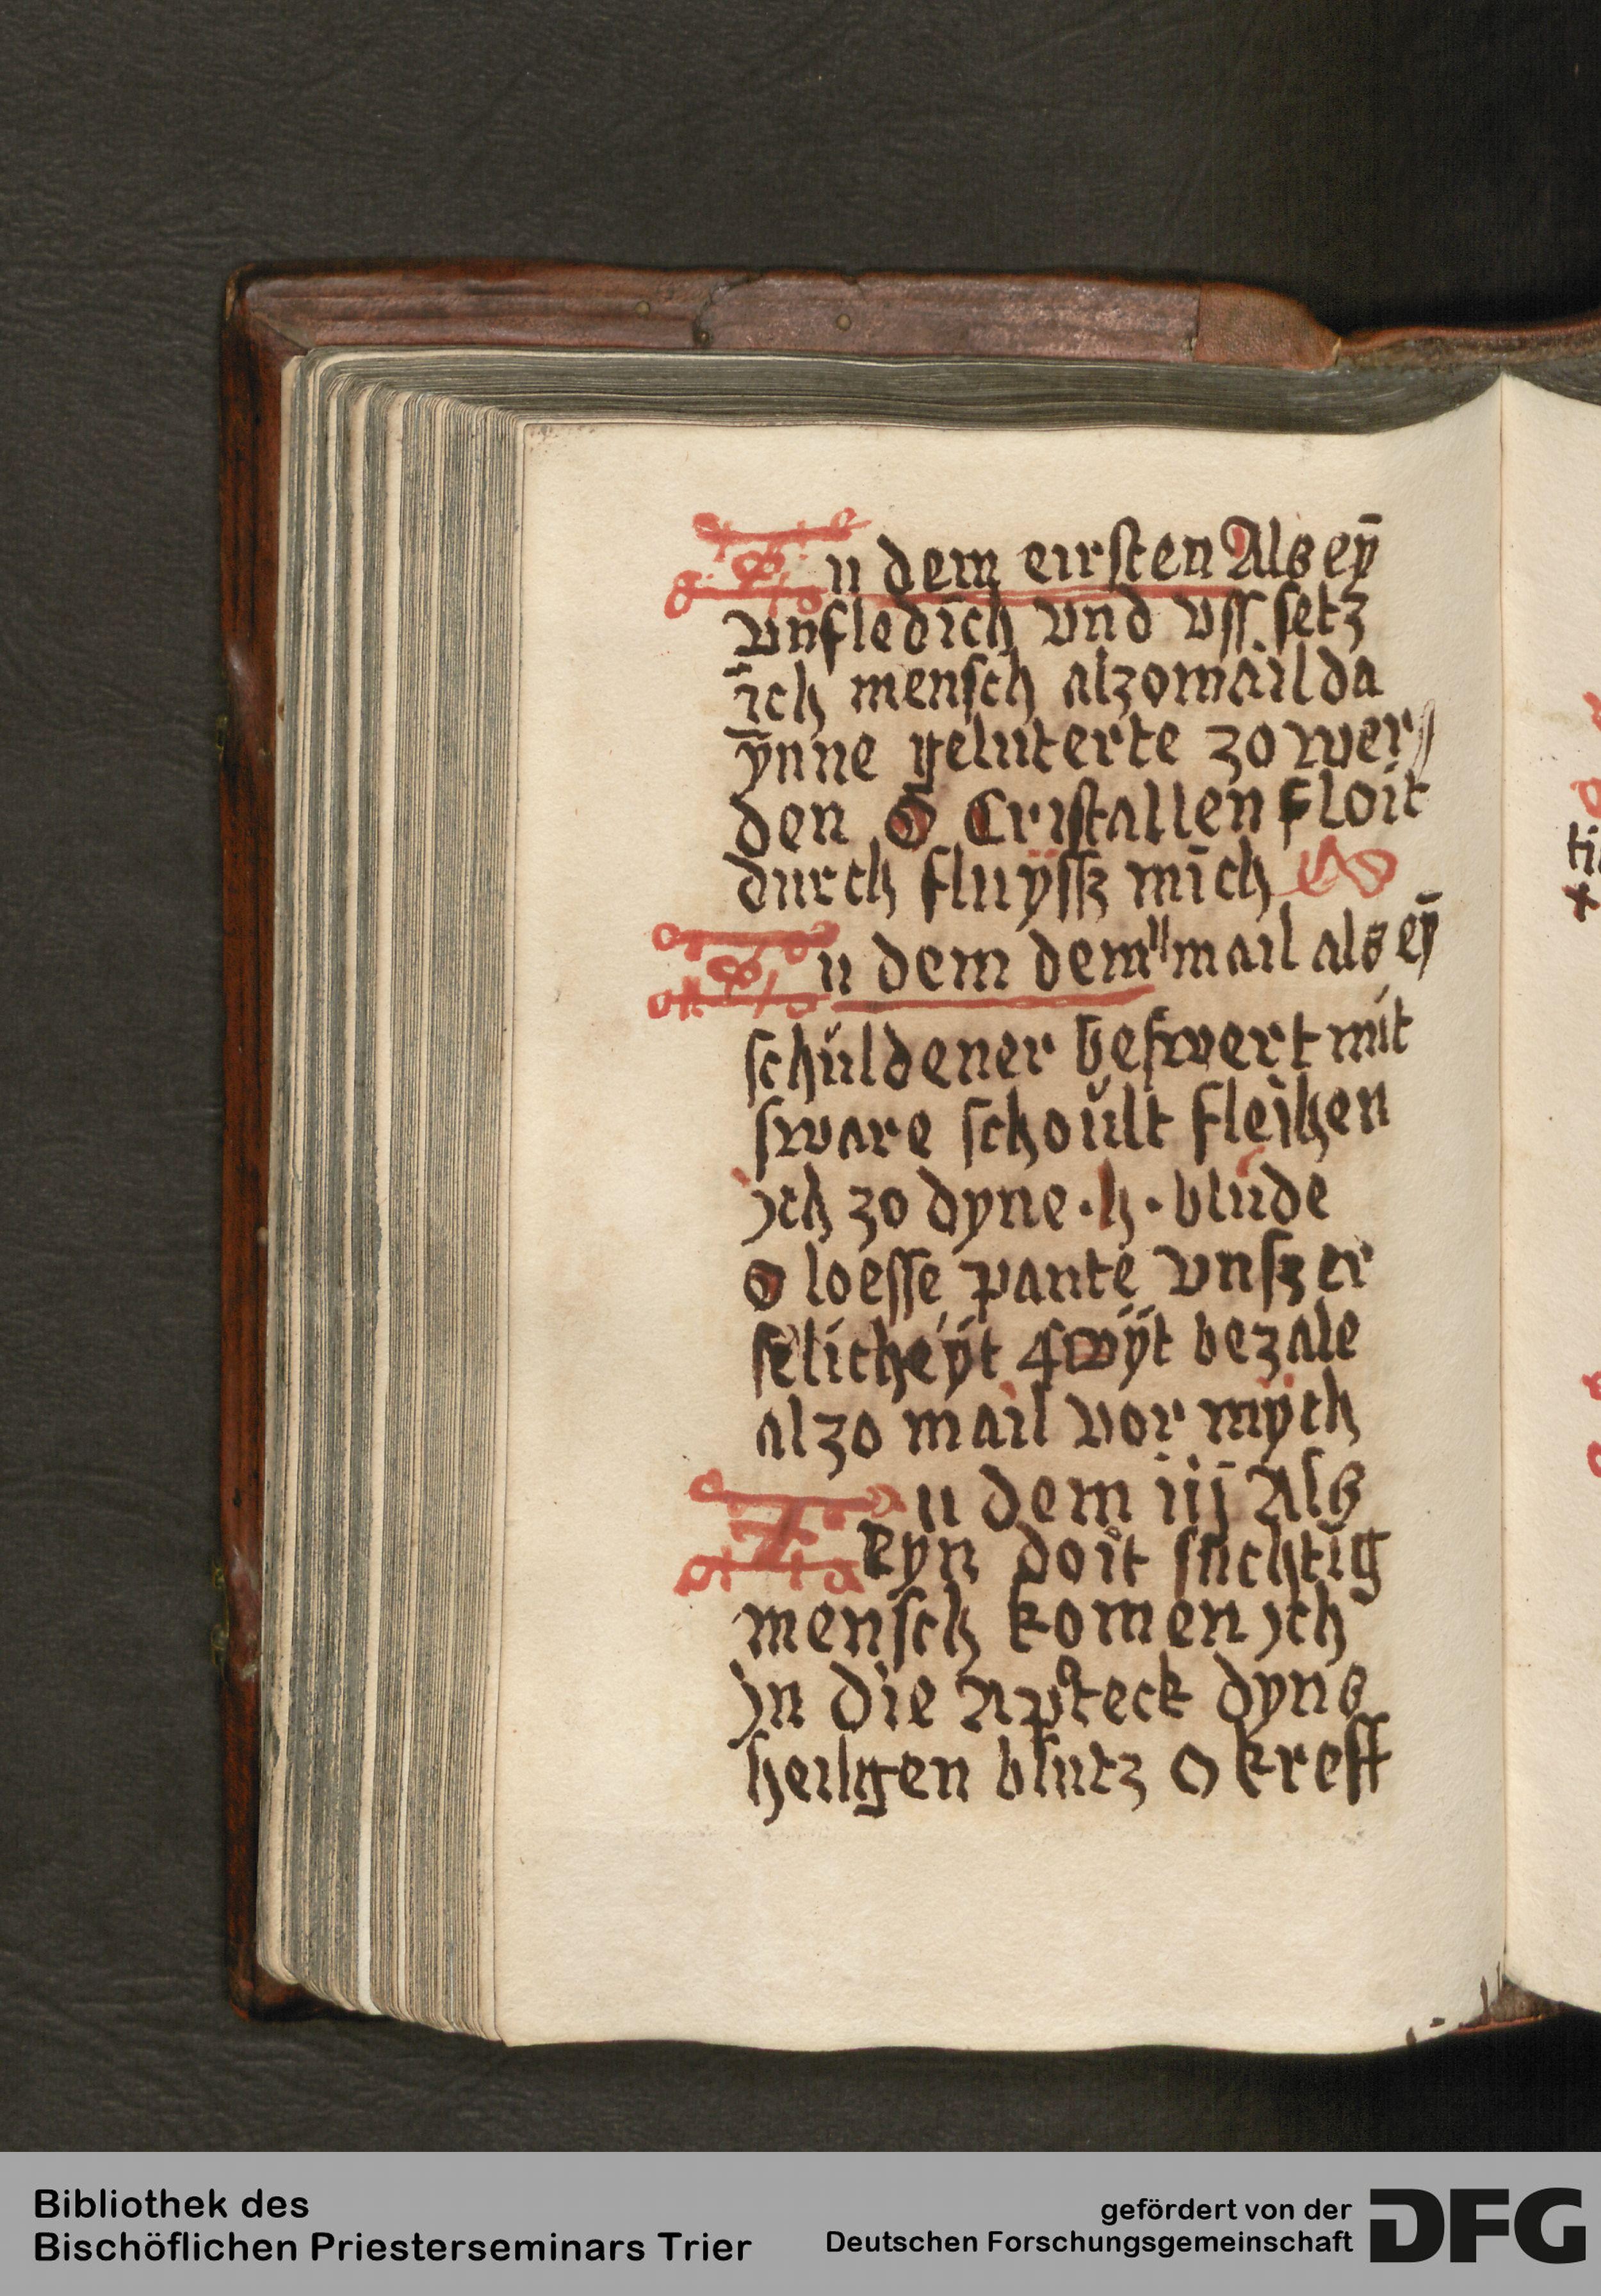 Zu dem eirsten Als eȳ
vnfledich vnd vss setz
ich mensch alzomail da
ynne geluterte zo wer
den O Cristallen floit
durch fluÿssz mich
Zu dem dem ij mail als eȳ
schuldener beswert mit
sware schoult fleihen
jch zo dyne · h · blude
O loesse pante vnszer
selicheÿt qwÿt bezale
alzo mail vor mÿch
Zu dem iij Als
Eyn doit suchtig
mensch komen jch
jn die Apteck dyns
heilgen blutz O kreff
Bibliothek des
Bischöflichen Priesterseminars Trier
gefördert von der
Deutschen Forschungsgemeinschaft
DFG